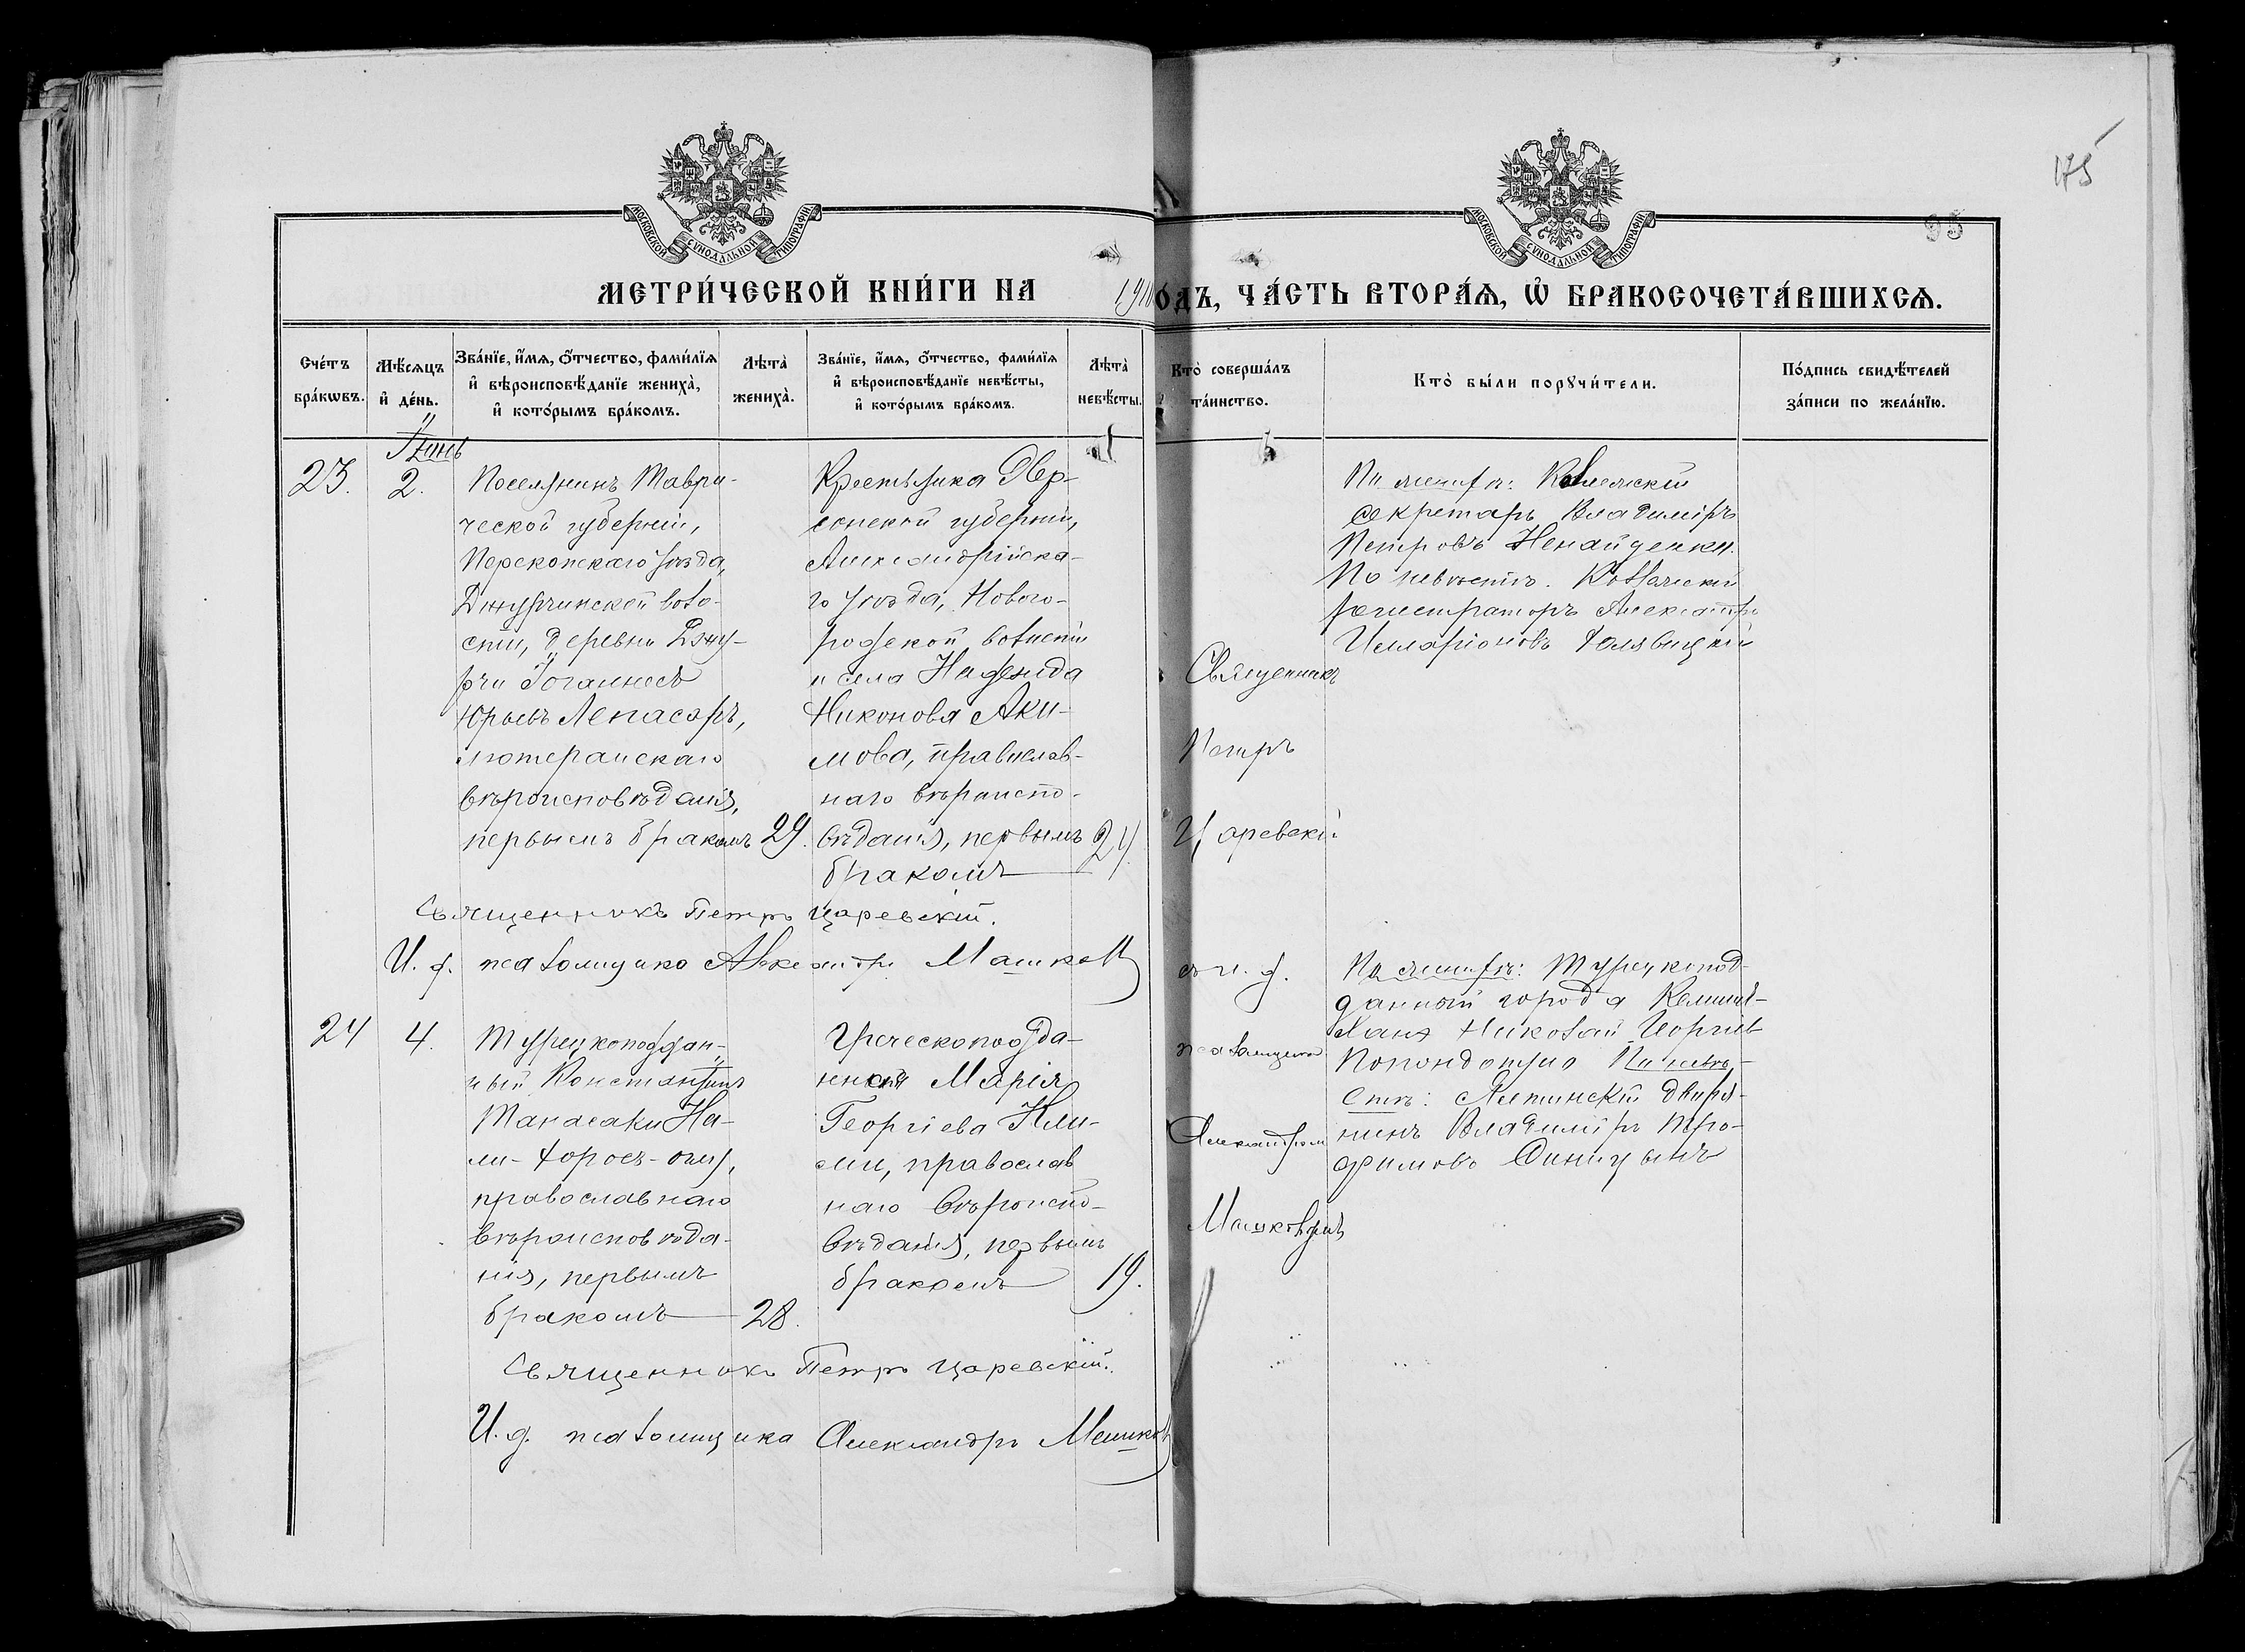 175
95
МОСКОВСКОЙ СѴНОДАЛЬНОЙ ТИПОГРАФІИ
МОСКОВСКОЙ СѴНОДАЛЬНОЙ ТИПОГРАФІИ
МЕТРИ́ЧЕСКОЙ КНИ́ГИ НА 1910
ОДЪ, ЧА́СТЬ ВТОРА́Ѧ, Ѽ БРАКОСОЧЕТА́ВШИХСѦ.
Сче́тъ
бра́кѡвъ.
Мѣ́сѧцъ
и҆ де́нь.
Зва́нїе, и҆́мѧ, ѻ҆́тчество, фами́лїѧ
и҆ вѣроисповѣ́данїе жениха̀,
и҆ кото́рымъ бра́комъ.
Лѣта̀
жениха̀.
Зва́нїе, и҆́мѧ, ѻ҆́тчество, фами́лїѧ
и҆ вѣроисповѣ́данїе невѣ́сты,
и҆ кото́рымъ бра́комъ.
Лѣта̀
невѣ́сты.
Кто̀ соверша́лъ
та́инство.
Кто̀ бы́ли порꙋчи́тели.
По́дпись свидѣ́телей
за́писи по жела́нїю.
Іюнь
23.
2.
Поселянинъ Таври-
ческой губерніи,
Перекопскаго уѣзда,
Джурчинской воло-
сти, деревни Джу-
рчи Іоганнесъ
Юрьевъ Леписаръ,
лютеранскаго
вѣроисповѣданія,
первымъ бракомъ
29.
Крестьянка Хер-
сонской губерніи,
Александрійска-
го уѣзда, Ново-
родской волости
и села Надежда
Никонова Аки-
мова, православ-
наго вѣроиспо-
вѣданія, первымъ
бракомъ
24.
Священникъ
Петръ
Царевскій
По женихѣ: Коллежскій
секретарь Владиміръ
Петровъ Ненайденко.
По невѣстѣ. Коллежскій
регистраторъ Александръ
Илларіоновъ
Священникъ Петръ Царевскій.
И. д. псаломщика Александръ Машковъ
24
4.
Турецкоподдан-
ный Константинъ
православнаго
вѣроисповѣда-
нія, первымъ
бракомъ
28.
Греческоподда-
нная Марія
Георгіева
православ
наго вѣроиспо-
вѣданія, первымъ
бракомъ
19.
съ и. д.
псаломщика
Александромъ
Машковымъ
По женихѣ: Турецкопод-
данный города
Николай
По невѣ-
стѣ: дворя-
нинъ Владиміръ
Синицынъ
Священникъ Петръ Царевскій.
И. д. псаломщика Александръ Машковъ